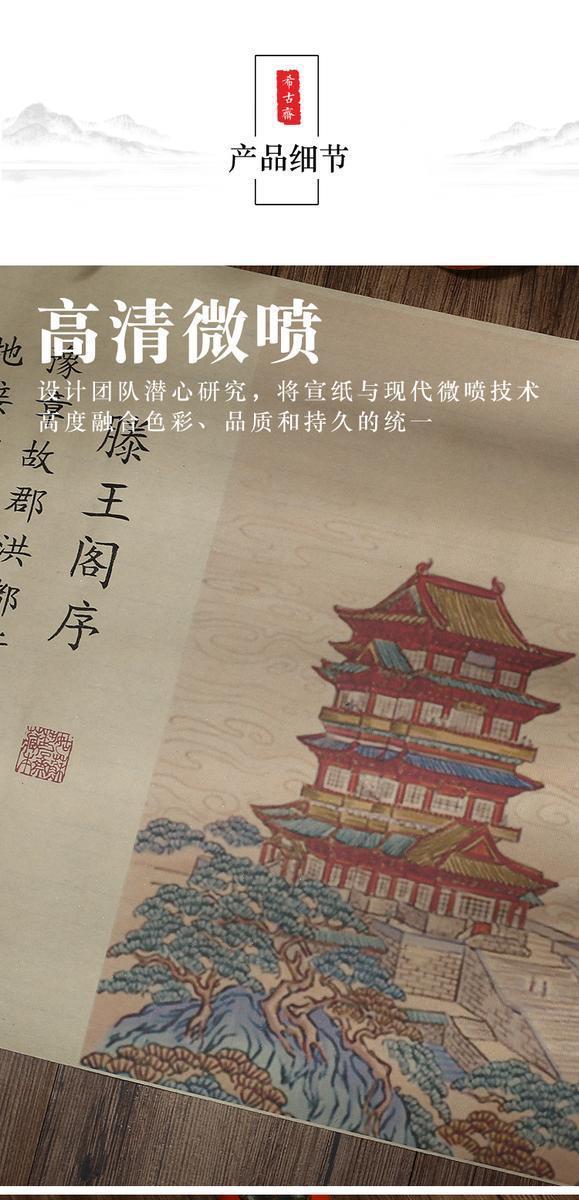 希古齋
产品细节
高清微喷
设计团队潜心研究，将宣纸与现代微喷技术
高度融合色彩、品质和持久的统一
滕王阁序
豫章故郡洪都
地接